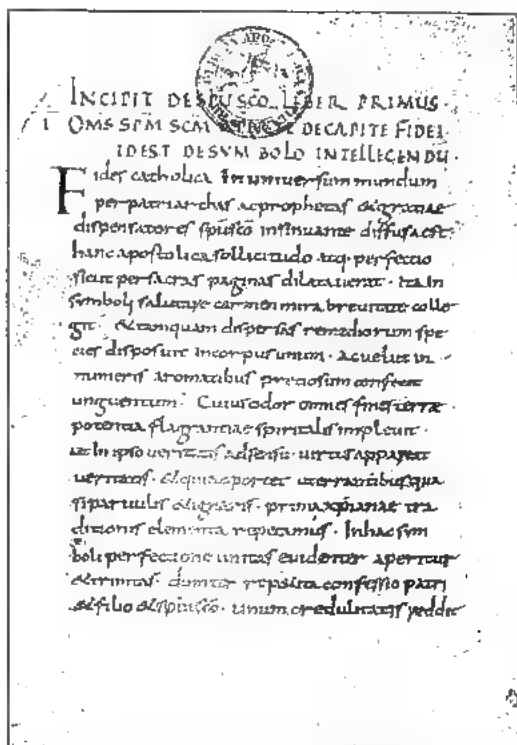 INCIPIT DE SPU SCO LIBER PRIMUS ·
I OMS SPM SCM DE CAPITE FIDEI
ID EST DE SYMBOLO INTELLEGENDU ·
Fides catholica In universum mundum
per patriarchas ac prophetas & gratiae
dispensatores spu sco insinuante diffusa est
hanc apostolica sollicitudo atq · perfectio
sicut per sacras paginas dilatauerat · Ita In
symboli salutare carmen mira breuitate colle
git · & tanquam dispersas remediorum spe
cies disposuit in corpus unum · ac uelut in
numeris aromatibus preciosum confecit
unguentum · Cuius odor omnes fines terrae
potentia flagrantiae spiritalis impleuit ·
ut In ipso ueritatis adsensu · uirtus appareat
ueritatis · & quia oportet ut errantibus qua
si paruulis & ignaris · prima xpianae tra
ditionis elementa repetamus · In hac sym
boli perfectione unitas euidenter aperitur
& trinitas · dum ter repetita confessio patri
& filio & spu sco · unum credulitatis reddit